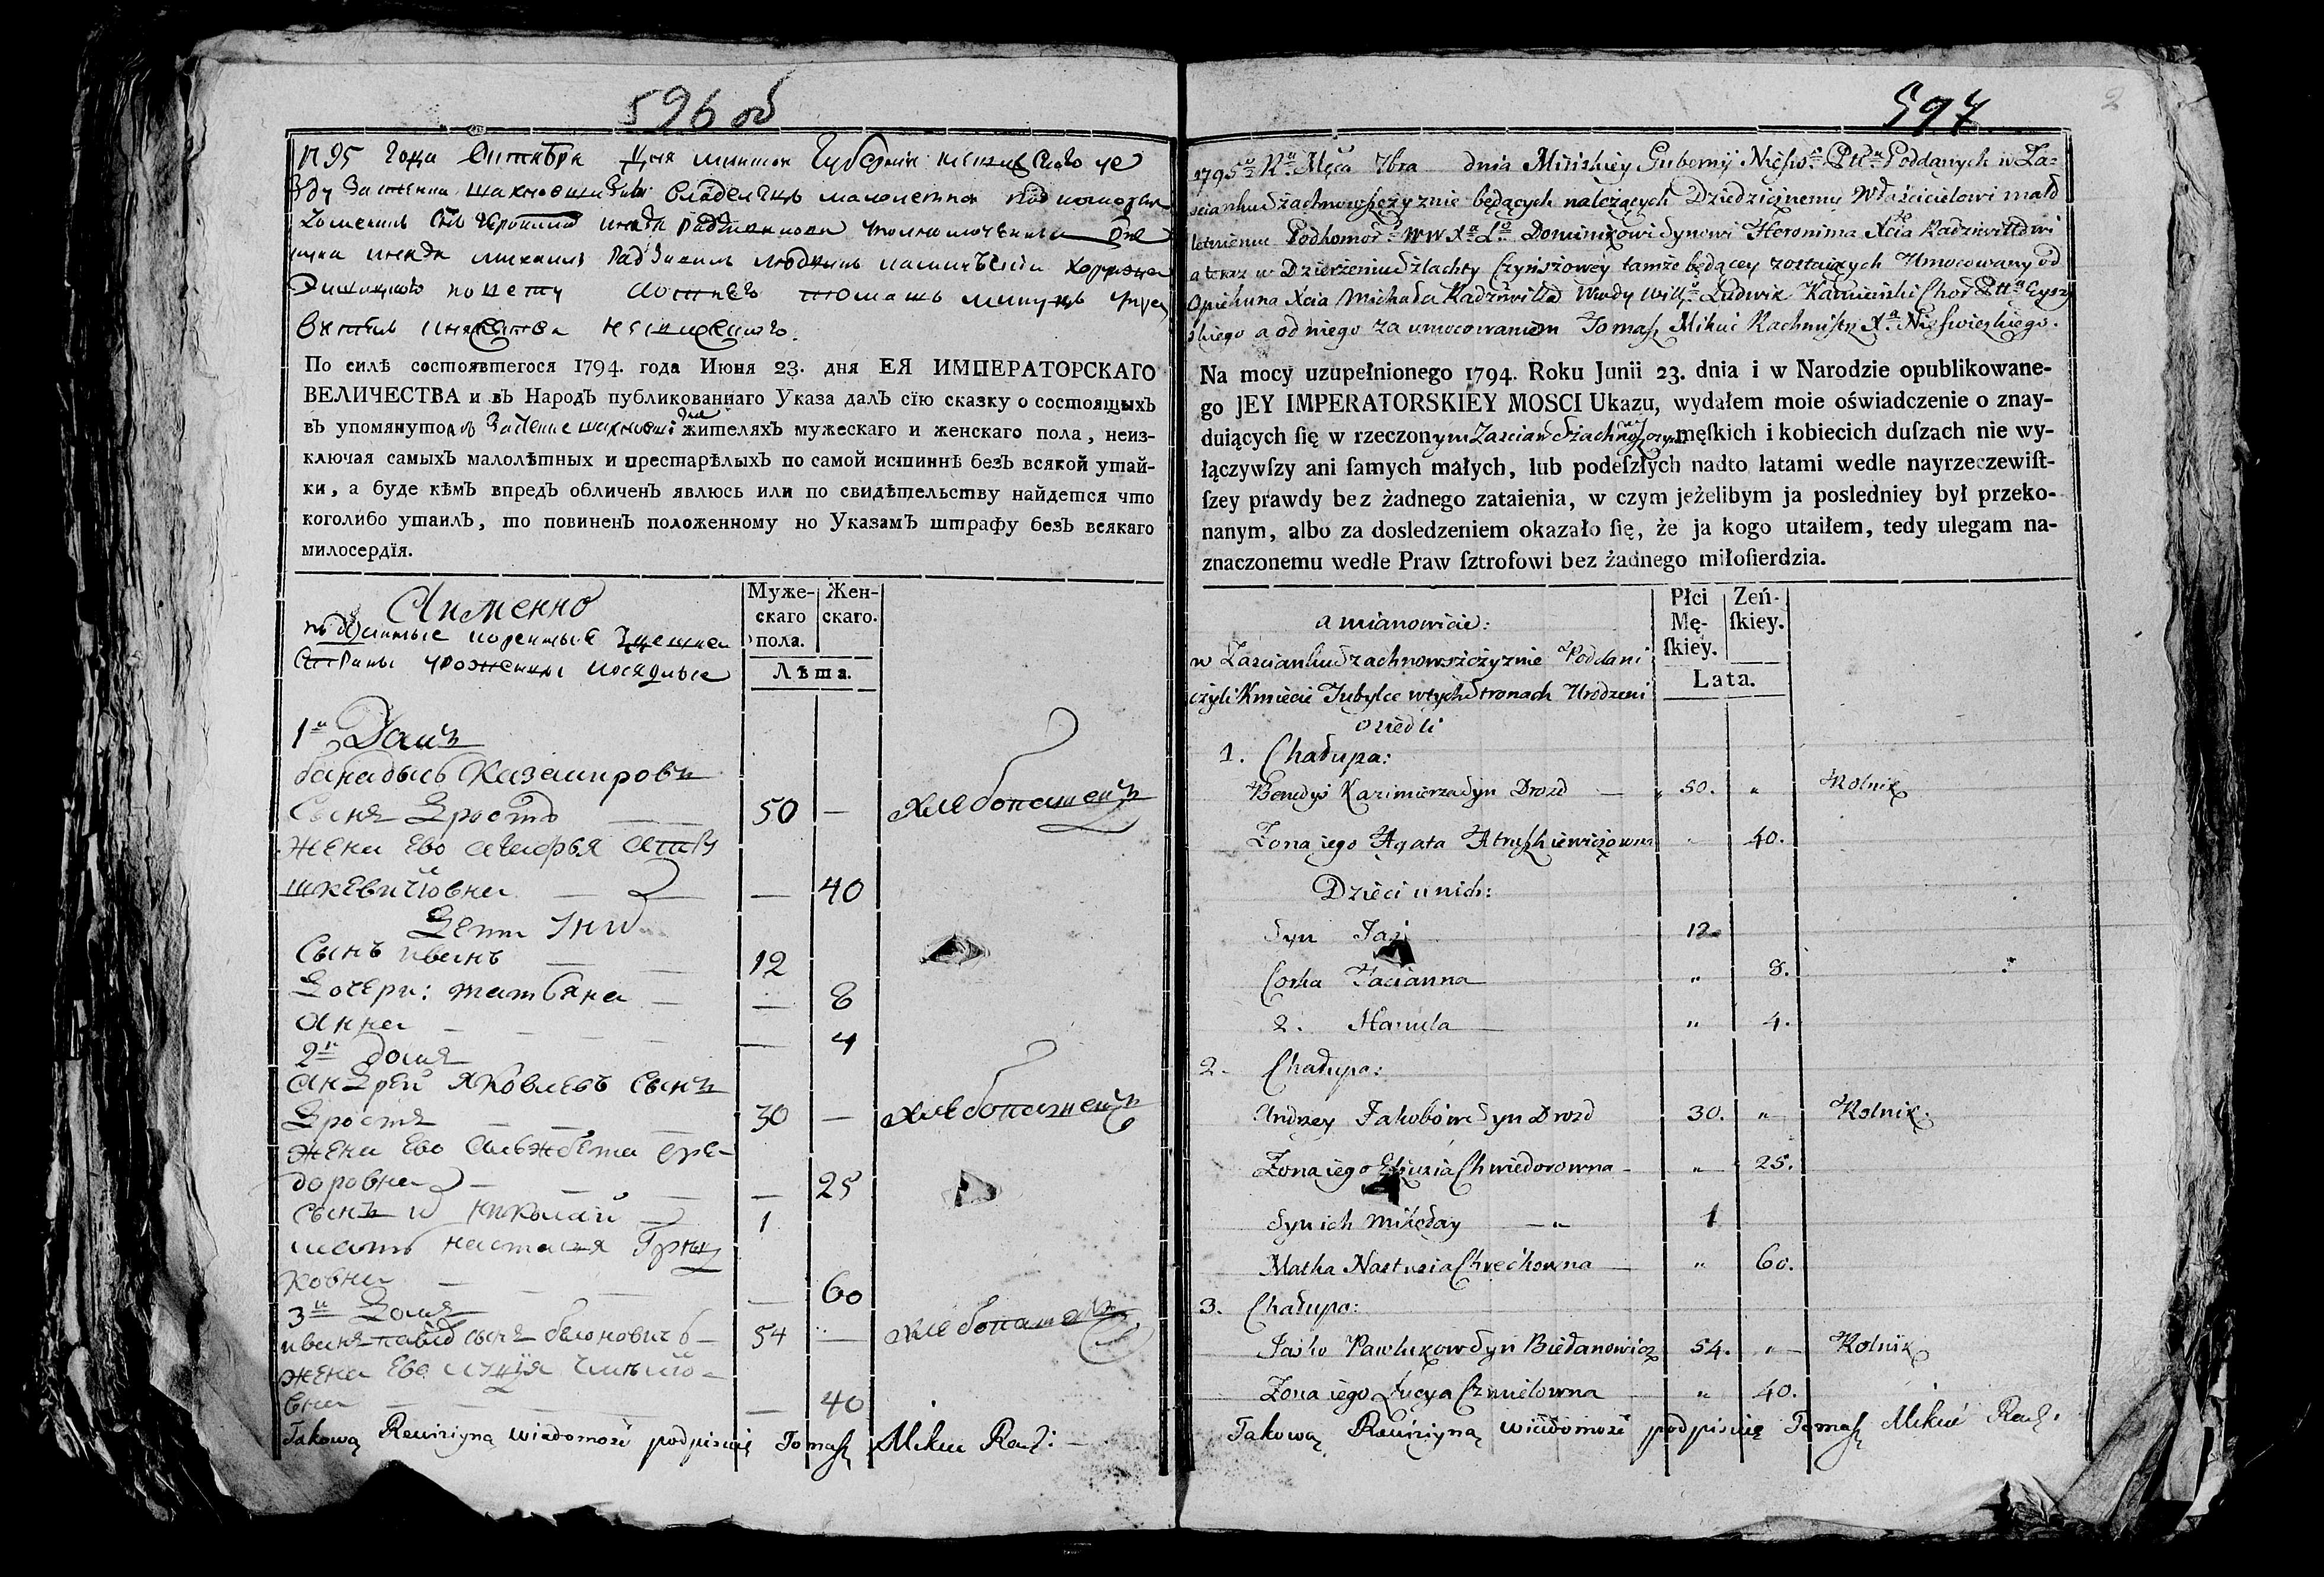 596 об
1795 года Сентября дня Минской Губернии Несвижского уе
зду Застенка владелицъ малолетной
Доменикъ сынъ Героним князя Радзивилла
князя михаила Радзивила людвикъ каминский хоружи
повету томашъ микуць
князства несвижского.
По силѣ состоявшегося 1794. года Июня 23. дня ЕЯ ИМПЕРАТОРСКАГО
ВЕЛИЧЕСТВА и въ НародЪ публикованнаго Указа далЪ сїю сказку о состоящыхЪ
въ упомянутомъ Застенке жителяхЪ мужескаго и женскаго пола, неиз-
ключая самыхЪ малолѣтныхЪ и престарѣлыхЪ по самой истиннѣ безЪ всякой утай-
ки, а буде кѣмЪ впредЪ обличенЪ явлюсь или по свидѣтельству найдется что
коголибо утаилЪ, то повиненЪ положенному по УказамЪ штрафу безЪ всякаго
милосердїя.
Аименно
Муже-
скаго
пола.
Жен-
скаго.
Лѣта.
подданные коренные здешнеи
стараны уроженцы
1й Домъ
банадысь Казимировъ
Сынъ Дроздъ 50 — хлебопашецъ
жена ево агафья атру
шкевичовна — 40
Дети у них
Сынъ иванъ 12
Дочери: татьяна — 8
анна — 4
2й домъ
андрей яковлевъ сынъ
Дроздъ 30 — хлебопашецъ
жена ево альжбета фе-
доровна — 25
сынъ их николай 1
мать настасия Гриц
ковна — 60
3й Домъ
иванъ павл сынъ беланович 54 — хлебопашецъ
жена ево луція чмыло-
вна — 40
Takową Rewizyiną wiadomość podpisuię Tomasz Mikuć Rach:
597
2
1795º Rº Męca 7bra dnia Mińskiey Gubernij Nieśwo Pttu Poddanych w Za=
ścianku Szachnowszczyznie będących należących Dziedzicznemu Właścicielowi mało
letniemu Podkomor WWXaLo Dominikowi Synowi Heronima Xcia Radziwiłłowi
a teraz w Dzierżeniu Szlachty Czynszowey tamże będącey zostaiących Umocowany od
Opiekuna Xcia Michała Radziwiłła Wwdy Willo Ludwik Kamieński Chor Pttu Eysz
skiego a od niego za umocowaniem Tomasz Mikuć Rachmistrz Xa Nieświezkiego.
Na mocy uzupełnionego 1794. Roku Junii 23. dnia i w Narodzie opublikowane-
go JEY IMPERATORSKIEY MOSCI Ukazu, wydałem moie oświadczenie o znay-
duiących ſię w rzeczonym Zascian Szachnowszczyz męſkich i kobiecich duſzach nie wy-
łączywſzy ani ſamych małych, lub podeſzłych nadto latami wedle nayrzeczewiſt-
ſzey prawdy bez żadnego zataienia, w czym jeżelibym ja posledniey był przeko-
nanym, albo za dosledzeniem okazało ſię, że ja kogo utaiłem, tedy ulegam na-
znaczonemu wedle Praw ſztrofowi bez żadnego miłoſierdzia.
a mianowicie:
Płci
Mę-
ſkiey.
Zeń-
ſkiey.
Lata.
w Zascianku Szachnowszczyznie Poddani
czyli Kmiecie Tubylce w tych Stronach Urodzeni
osiedli
1. Chałupa:
Benedyś Kazimierza Syn Drozd — 50. „ Rolnik
Zona iego Agata Atruszkiewiczowna 40.
Dzieci u nich:
Syn Jaś 12
Corka Tacianna „ 8.
2. Hanula „ 4.
2. Chałupa:
Andrzey Jakobów Syn Drozd 30. „ Rolnik.
Zona iego Elżusia Chwiedorowna „ 25.
Syn ich Mikołay — „ 1
Matka Nastusia Chreckowna „ 60.
3. Chałupa:
Jasko Pawlukow Syn Biełanowicz 54. „ Rolnik
Zona iego Łucya Czmiełowna „ 40.
Takową Rewizyiną wiadomość podpisuię Tomasz Mikuć Rach: